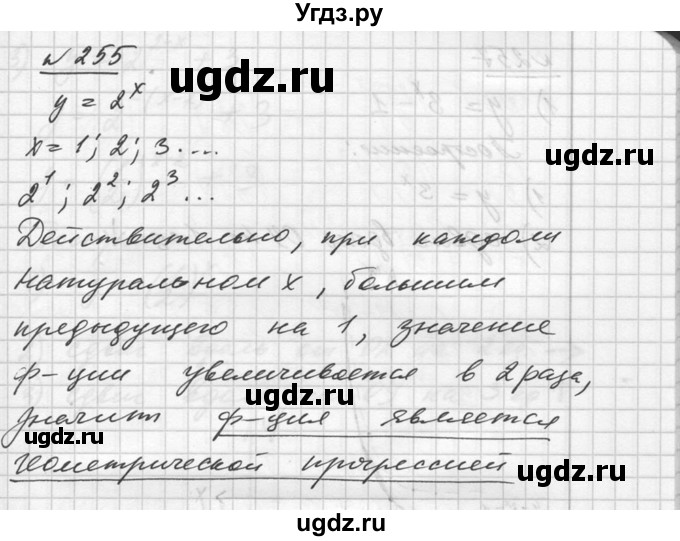 Угдз.ру
№ 255
y = 2^x
x = 1; 2; 3 ....
2^1; 2^2; 2^3 ...
Действительно, при каждом
натуральном x, большим
предыдущего на 1, значение
ф-ции увеличивается в 2 раза,
значит ф-ция является
геометрической прогрессией
ugdz.ru
ugdz.ru
ugdz.ru
ugdz.ru
ugdz.ru
ugdz.ru
ugdz.ru
ugdz.ru
ugdz.ru